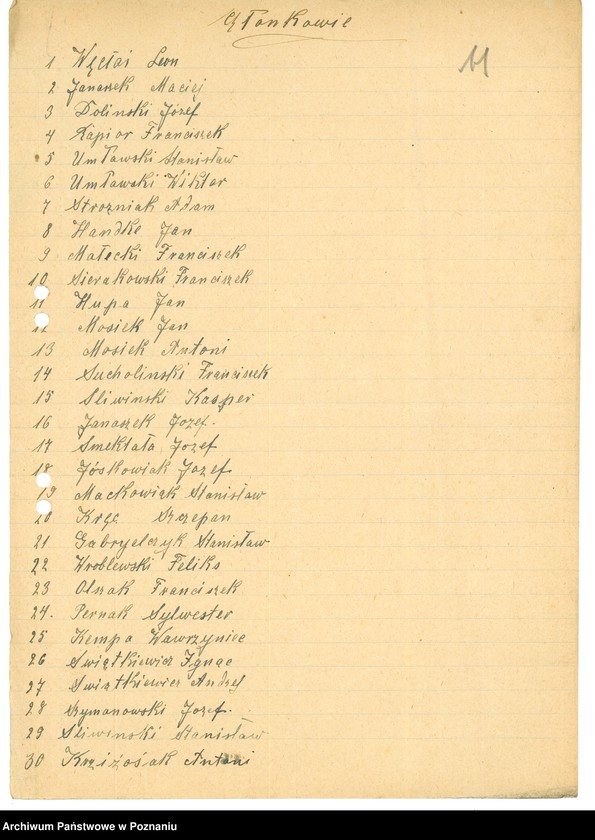 Członkowie
11
1 Węcłaś Leon
2 Janaszek Maciej
3 Dolinski Józef
4 Kapior Franciszek
5 Umławski Stanisław
6 Umławski Wiktor
7 Strozniak Adam
8 Handke Jan
9 Małecki Franciszek
10 Sierakowski Franciszek
11 Hupa Jan
12 Mosiek Jan
13 Mosiek Antoni
14 Sucholinski Franciszek
15 Sliwinski Kasper
16 Janaszek Jozef.
17 Smektała Józef
18 Jóskowiak Jozef
19 Mackowiak Stanisław
20 Kręc Szczepan
21 Gabryelczyk Stanisław
22 Wroblewski Feliks
23 Olszak Franciszek
24. Pernak Sylwester
25 Kempa Wawrzyniec
26 Swiątkiewicz Ignac
27 Swiątkiewicz Andrzej
28 Szymanowski Jozef.
29 Sliwinski Stanisław
30 Antoni
Archiwum Państwowe w Poznaniu